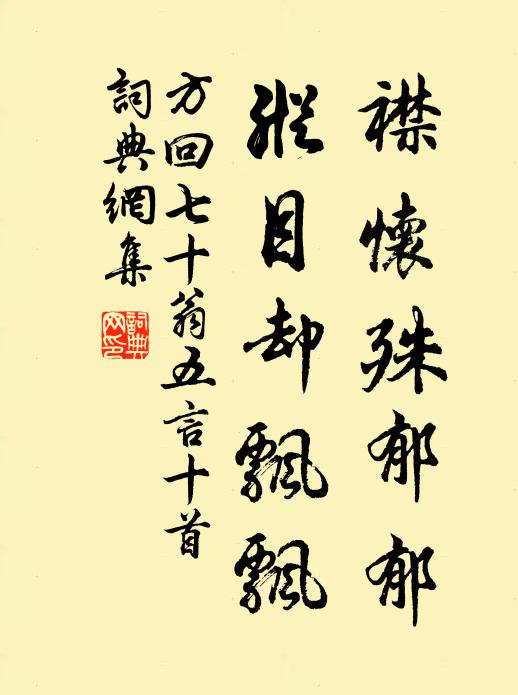 襟懷殊郁郁
縱目却飄飄
方回七十翁五言十首
詞典網集
詞典網印